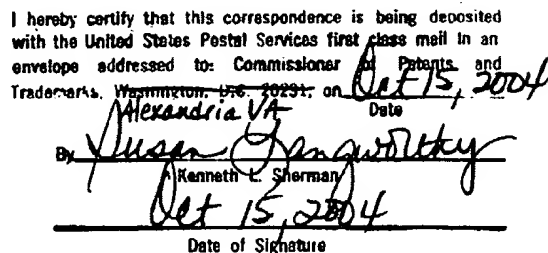 I hereby certify that this correspondence is being deposited
with the United States Postal Services first class mail in an
envelope addressed to: Commissioner of Patents and
Trademarks, Washington, D.C. 20231, on Oct 15, 2004
Alexandria VA Date
By Susan Langworthy
Kenneth L. Sherman
Oct 15, 2004
Date of Signature